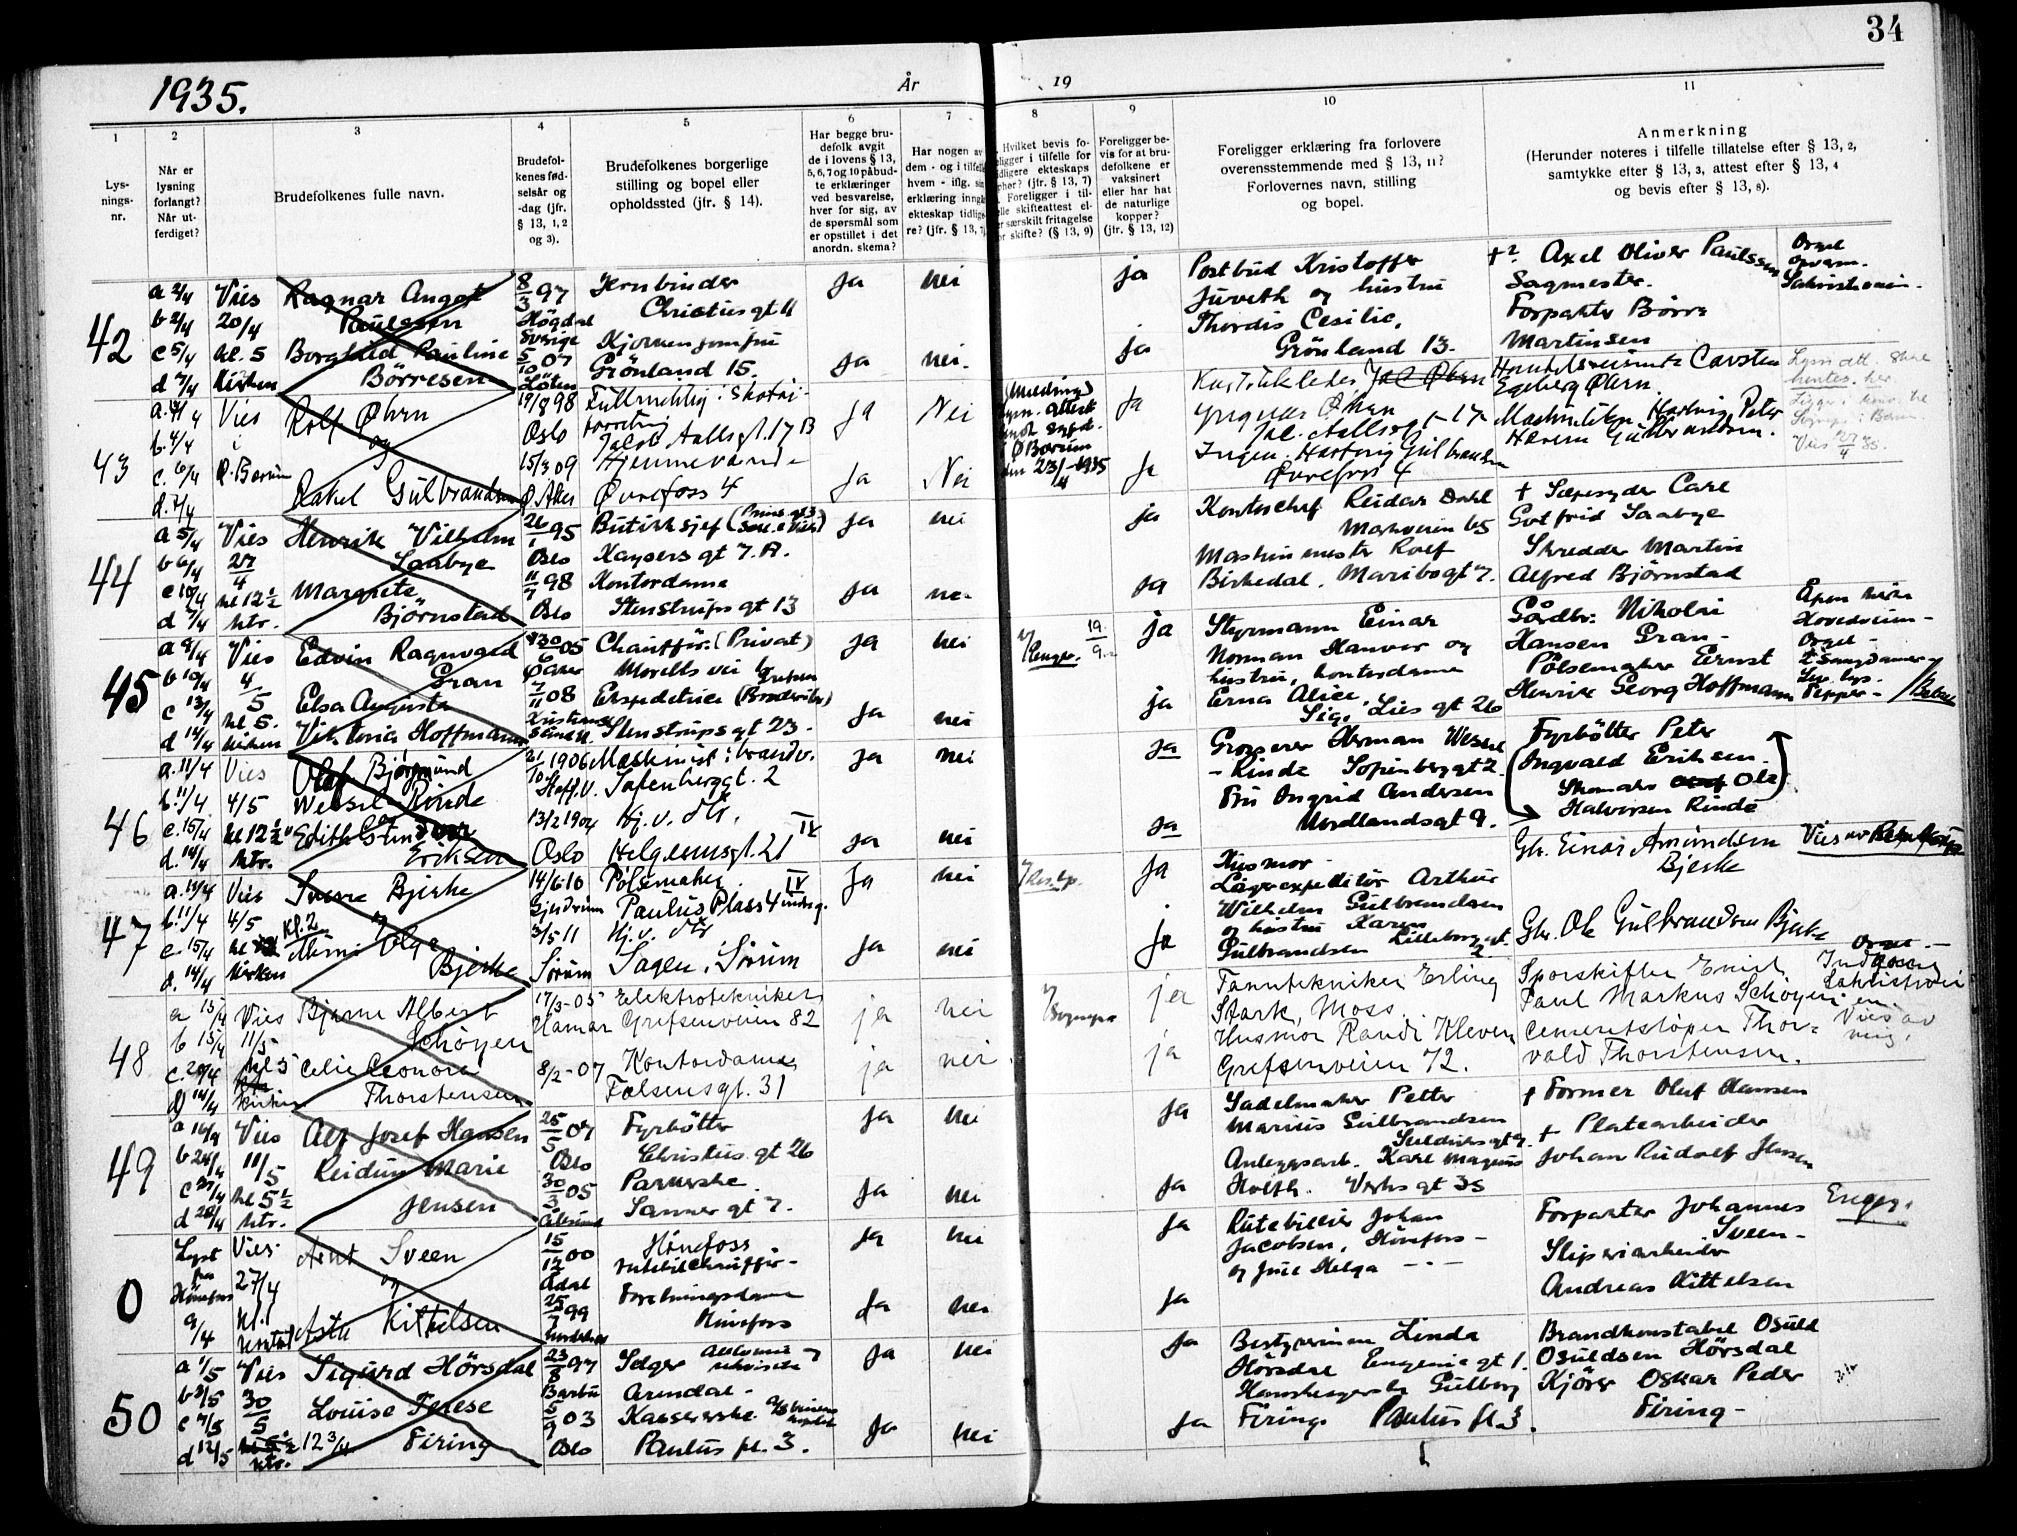 34
1935.
År
19
1
2
3
4
5
6
7
8
9
10
11
Lys-
nings-
nr.
Når er
lysning
forlangt?
Når ut-
ferdiget?
Brudefolkenes fulle navn.
Brudefol-
kenes fød-
selsår og
-dag (jfr.
§ 13, 1, 2
og 3).
Brudefolkenes borgerlige
stilling og bopel eller
opholdssted (jfr. § 14).
Har begge bru-
defolk avgit
de i lovens § 13,
5, 6, 7 og 10 påbud-
te erklæringer
ved besvarelse,
hver for sig, av
de spørsmål som
er opstillet i det
anordn. skema?
Har nogen av
dem - og i tilfelle
hvem - iflg. sin
erklæring inngått
ekteskap tidlige-
re? (jfr. § 13, 7)
Hvilket bevis fo-
religger i tilfelle for
tidligere ekteskaps
ophør? (jfr. § 13, 7)
Foreligger i til-
felle skifteattest el-
ler særskilt fritagelse
for skifte? (§ 13, 9)
Foreligger be-
vis for at bru-
defolkene er
vaksinert
eller har hat
de naturlige
kopper?
(jfr. § 13, 12)
Foreligger erklæring fra forlovere
overensstemmende med § 13, 11?
Forlovernes navn, stilling
og bopel.
Anmerkning
(Herunder noteres i tilfelle tillatelse efter § 13, 2,
samtykke efter § 13, 3, attest efter § 13, 4
og bevis efter § 13, 8).
42
a 2/4
b 2/4
c 5/4
d 7/4
Vies
20/4
kl. 5
kirken
Ragnar August
Paulssen
Borghild Pauline
Börresen
8/3 97
Högdal
Sverige
5/10 07
Löten
Jernbinder
Christiesgt 11
Kjökkenjomfru
Grönland 15.
ja nei
ja nei.
ja
ja
Postbud Kristoffer
Juveth og hustru
Thordis Cesilie,
Grönland 13.
Axel Oliver Paulssen
Sagmester.
Forpakter Börre
Martinsen
Orgel
43
a. 4/4
b. 4/4
c. 6/4
d. 7/4
Vies
i
Ø. Bærum
Rolf Øhrn
og
Rakel Gulbrandsen
19/8 98
Oslo
15/3 09
Ø. Aker
Fullmektig i skotøi-
forretning
Jacob Aallsgt. 17 B
Hjemmeværende
Øvrefoss 4
Ja Nei
Ja Nei
Ø Bærum
den 23/4-1935
Ja
Ja
Jac. Aallsgt - 17
Ingen. Hartvig Gulbrandsen
Øvrefoss 4
Carsten
Egeberg Øhrn.
Hartvig Peter
Gulbrandsen.
Vies 27/4 35.
44
a 5/4
b 6/4
c 10/4
d 7/4
Vies
27
4
kl 12 1/2
ktr.
Henrik Vilhelm
Saabye
Margrete
Björnstad
26/1 95
Oslo
11/7 98
Oslo
Butikksjef
Kaysers gt 7. A.
Kontordame
Stenstrups gt 13
ja nei
ja nei
ja
ja
Kontorchef Reidar Dahl
Markveien 65
Maskinmester Rolf
Birkedal. Maribogt 7.
+ Sæpesyder Carl
Gotfrid Saabye
Skredder Martin
Alfred Björnstad
45
a 9/4
b 10/4
c 13/4
d 14/4
Vies
4
5
kl 5.
kirken
Edvin Ragnvald
Gran
Elsa Augusta
Viktoria Hoffmann
30/6 05
Ø Aker
7/11 08
Kristian-
sand S
Chaufför. (Privat)
Morells vei 6
Ekspeditrice
Stenstrupsgt 23.
ja nei
ja nei
19
9
ja
ja
Styrmann Einar
Norman Hanvor og
hustru, kontordame
Erna Alice
Sig. Lies gt 26
Gårdbr. Nikolai
Hansen Gran -
Pölsemaker Ernst
Henrik Georg Hoffmann
Åpen kirke
Hovedveien -
Orgel -
46
a. 11/4
b. 11/4
c. 15/4
d. 14/4
Vies
4/5
kl 12 1/2
ktr.
Olaf Bjørgmund
Wessel Rinde
og
Edith
Eriksen
21/10 1906
13/2 1904
Oslo
Maskinist i brandv.
Tofenberggt. 2
Hj. v. dtr.
Helgesensgt. 21 IV
ja nei
ja nei
ja
ja
Grosserer Herman Wessel
- Rinde Sofienberggt 2.
Fru Ingrid Andersen
Nordlandsgt 9.
Fyrbötter Peter
Ingvald Eriksen.
Skomaker Ole
Halvorsen Rinde
47
a. 11/4
b. 11/4
c. 15/4
d. 14/4
Vies
4/5
kl. 2
kirken
Sverre Bjerke
og
Olga
Bjerke
14/6 10
Gjerdrum
3/5 11
Sörum
Pölsemaker IV
Paulus Plass 4
Hj. v. dtr
Sagen i Sörum
Ja nei
ja nei
ja
ja
Husmor
Lagerexpeditör Arthur
Wilhelm Gulbrandsen
og hustru Karen
Gulbrandsen Lilleborggt. 2
Gbr. Einar Amundsen
Bjerke
Gbr. Ole Gulbrandsen Bjerke
Vies av
48
a 15/4
b 15/4
c. 20/4
d 14/4
Vies
11/5
kl 5
kirken
Bjarne Albert
Schöyen
Celie Leonore
Thorstensen
17/3-05
Hamar
8/2-07
Elektrotekniker
Grefsenveien 82
Kontordame
Falsensgt. 31
ja nei
ja nei.
ja
ja
Tanntekniker Erling
Stark, Moss.
Husmor Randi Kleven
Grefsenveien 72.
Sporskifter Emil
Paul Markus Schöyen.
Cementstöper Thor-
vald Thorstensen.
Orgel -
Vies av
mig.
49
a 16/4
b 24/4
c 27/4
d 28/4
Vies
11/5
kl 5 1/2
ktr.
Alf Josef Hansen
Reidun Marie
Jensen
25/5 07
Oslo
30/3 05
Ålesund
Fyrbötter
Christies gt 26
Parnerske.
Sannergt 7.
ja nei
ja nei
ja
ja
Sadelmaker Petter
Marius Gulbrandsen
Anleggsarb. Karl Magnus
Holth. Vogts gt 35
+ Former Olaf Hansen
+ Platearbeider
Johan Rudolf Jensen
0
Lyst
fra
Hönefoss
9/4
Vies
27/4
kl. 1
Arnt Sveen
og
Aste Kittelsen
15/12 00
Ådal
25/7 99
Hönefoss
rutebilchaufför -
Forretningsdame
Hönefoss
ja nei
ja nei
ja
ja
Rutebileier Johan
Jacobsen, Hönefoss -
og frue Helga - . -
Forpakter Johannes
Sveen -
Sliperiarbeider
Andreas Kittelsen
50
a 1/5
b 3/5
c 7/5
d 12/5
Vies
30
5
ktr.
12 3/4
Sigurd Hörsdal
Louise Terese
Firing
23/8 97
Barbu
5/9 03
Oslo
Selger
Arendal -
Kassererske
Paulus pl. 3.
ja nei
ja nei
ja
ja
Bestyrerinne Linda
Hörsdal Eugenie gt 1.
Gulborg
Firing Paulus pl. 3.
Brandkonstabel Osuld
Osuldsen Hörsdal
Kjörer Oskar Peder
Firing -